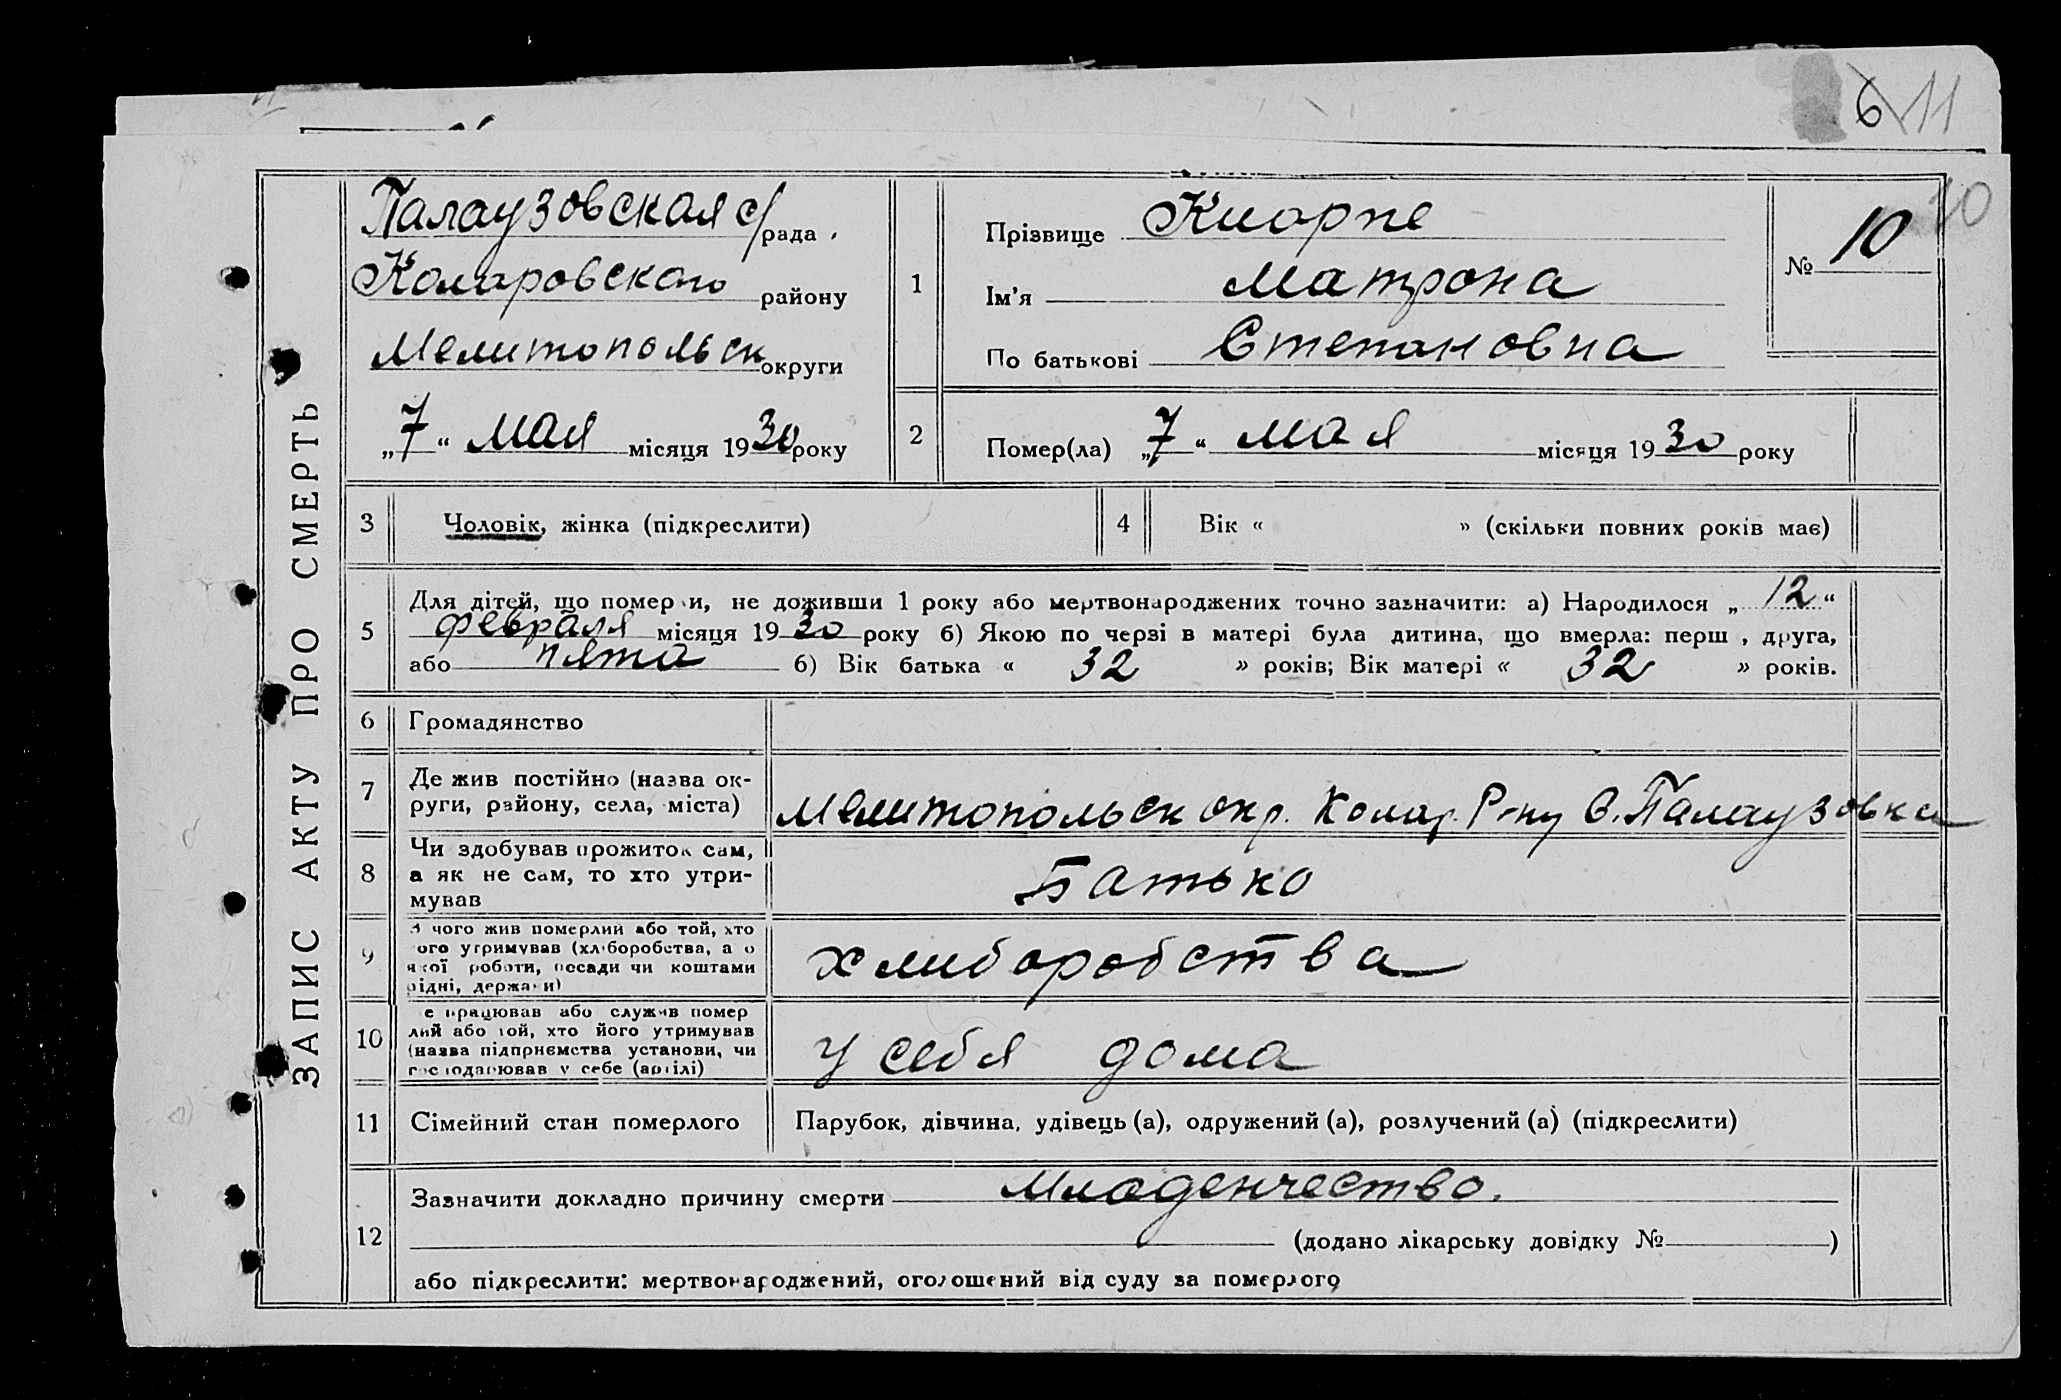 6 11
10
ЗАПИС АКТУ ПРО СМЕРТЬ
Палаузовская с/рада
Коларовского району
Мелитопольск округи
„7“ мая місяця 1930 року
1
Прізвище Киорпе
Ім'я Матрона
По батькові Степановна
№ 10
2
Помер(ла) „7“ мая місяця 1930 року
3 Чоловік, жінка (підкреслити)
4 Вік « » (скільки повних років має)
5
Для дітей, що померли, не доживши 1 року або мертвонароджених точно зазначити: а) Народилося „12“
февраля місяця 1930 року б) Якою по черзі в матері була дитина, що вмерла: перш , друга,
або пята б) Вік батька « 32 » років; Вік матері « 32 » років.
6 Громадянство
7 Де жив постійно (назва ок-
руги, району, села, міста)
Мелитопольск окр. Колар. Р-ну С. Палаузовка
8 Чи здобував прожиток сам,
а як не сам, то хто утри-
мував
Батько
9 З чого жив померлий або той, хто
ого утримував (хліборобства, а о
якої роботи, посади чи коштами
рідні, держави)
хлиборобства
10 е працював або служив помер
лий або той, хто його утримував
(назва підприємства установи, чи
господарював у себе (артілі)
у себя дома
11 Сімейний стан померлого
Парубок, дівчина, удівець (а), одружений (а), розлучений (а) (підкреслити)
12
Зазначити докладно причину смерти Младенчество.
(додано лікарську довідку № )
або підкреслити: мертвонароджений, оголошений від суду за померлого